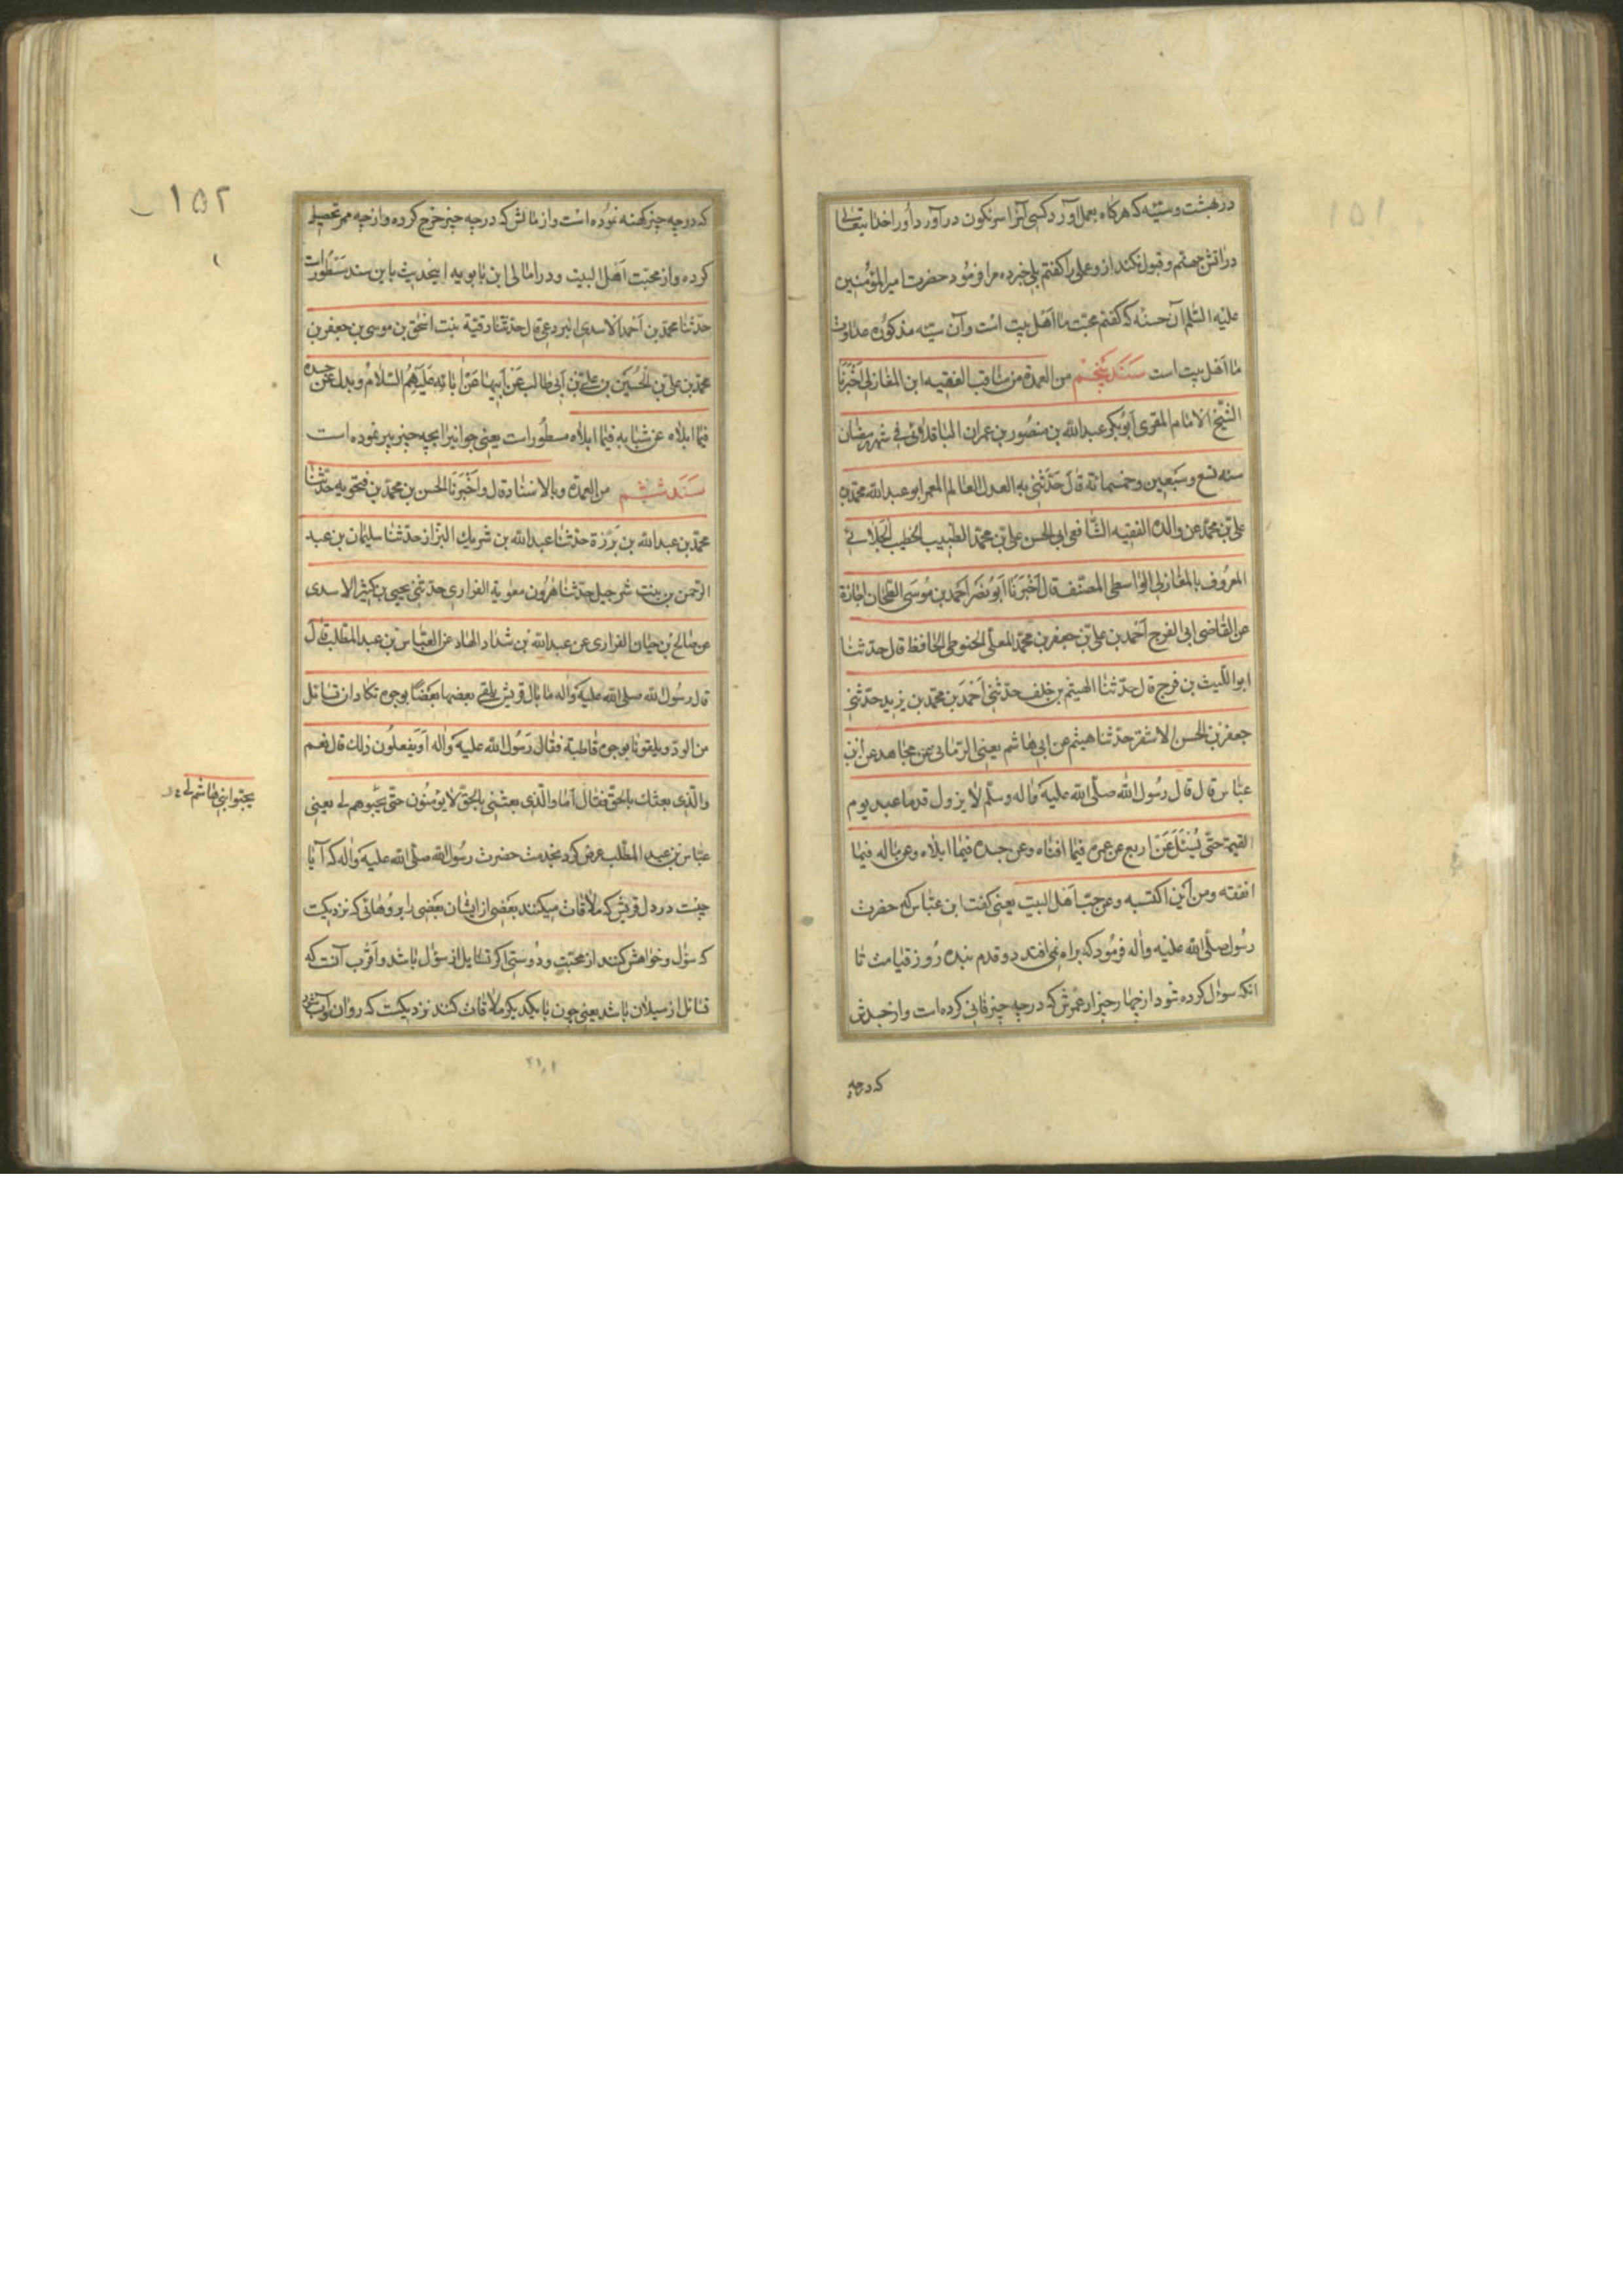 ۱۵۱
در بهشت و سیّئه که هرکاه بعمل آورد کسی آنرا سرنکون درآورد اورا خدایتعالی
در اتش جهنم و قبول نکند ازو عملی را کفتم بلی خبر ده مرا فرمود حضرت امیرالمؤمنین
علیه السّلم آن حسنه که کفتم محبّت ما اهل بیت است وآن سیّئه مذکوره عداوت
ما اهل بیت است سند پنجم من العمدة من مناقب الفقیه ابن المغازلی اخبرنا
الشّیخ الامام المقری ابوبکر عبدالله بن منصور بن عمران الباقلانی فی شهر رمضان
سنه تسع وسبعین وخمسمائة قال حدّثنی به العدل العالم المعمر ابو عبدالله محمد بن
علی بن محمد عن والده الفقیه الشّافعی ابی الحسن علی بن محمد الطبیب الخطیب الجلابی
المعروف بالمغازلی الواسطی المصنّف قال اخبرنا ابو نصر احمد بن موسی الطحان اجازة
عن القاضی ابی الفرج احمد بن علی بن جعفر بن محمّد المعلّی الحنوطی الحافظ قال حدّثنا
ابواللّیث بن فرج قال حدّثنا الهیثم بن خلف حدّثنی احمد بن محمّد بن یزید حدّثنی
جعفر بن الحسن الاشقر حدّثنا هیثم عن ابی هاشم یعنی الرّمّانی عن مجاهد عن ابن
عبّاس قال قال رسول الله صلّی الله علیه واله وسلّم لا یزول قدما عبد یوم
القیمة حتّی یسئل عن اربع عن عمره فیما افناه وعن جسده فیما ابلاه وعن ماله فیما
انفقته ومن این اکتسبه وعن حبّ اهل البیت یعنی کفت ابن عبّاس که حضرت
رسول صلّی الله علیه واله فرمود که براه نمی افتد دو قدم بنده روز قیامت تا
انکه سوال کرده شود از چهار چیز از عمرش که در چه چیز فانی کرده است واز جسدش
که در چه
۱۵۲
که در چه چیز کهنه نموده است واز مالش که در چه چیز خرج کرده واز چه ممر تحصیل
کرده واز محبّت اهل البیت ودر امالی ابن بابویه اینحدیث باین سند مسطور است
حدّثنا محمّد بن احمد الاسدی البردعی قال حدّثنا رقیّة بنت اسحق بن موسی بن جعفر بن
محمّد بن علی بن الحسین بن علی بن ابی طالب عن ابیها عن ابائه علیهم السّلام وبدل عن جسده
فیما ابلاه عن شبابه فیما ابلاه مسطور است یعنی جوانیرا بچه چیز پیر نموده است
سند ششم من العمدة وبالاسناد قال واخبرنا الحسن بن محمّد بن فنجویه حدّثنا
محمّد بن عبدالله بن برزة حدّثنا عبدالله بن شریك البزاز حدّثنا سلیمان بن عبد
الرحمن بن بنت شرجیل حدّثنا هرون معویة الفزاری حدّثنی یحیی بن کثیر الاسدی
عن صالح بن حیان الفزاری عن عبدالله بن شداد الهاد عن العبّاس بن عبدالمطّلب قال
قال رسول الله صلی الله علیه واله ما بال قریش یلقی بعضها بعضًا بوجوه تکاد ان تسایل
من الودّ ویلقونا بوجوه قاطبة فقال رسول الله علیه واله او یفعلون ذلك قال نعم
والّذی بعثك بالحقّ فقال اما والّذی بعثنی بالحقّ لا یؤمنون حتّی یحبّوهم لی یعنی
یحبّوا بنی هاشم لی
عبّاس بن عبدالمطّلب عرض کرد بخدمت حضرت رسول الله صلّی الله علیه واله که آیا
چیست در دل قریش که ملاقات میکنند بعضی از ایشان بعضی را بروهائی که نزدیکست
که سؤال وخواهش کنند از محبّت ودوستی اکر تسایل از سؤال باشد واقرب آنست که
تسائل از سیلان باشد یعنی چون بایکدیکر ملاقات کنند نزدیکست که روان